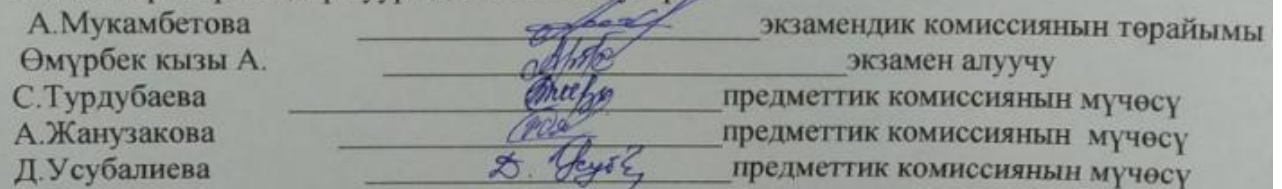 А.Мукамбетова экзамендик комиссиянын төрайымы
Өмүрбек кызы А. экзамен алуучу
С.Турдубаева предметтик комиссиянын мүчөсү
А.Жанузакова предметтик комиссиянын мүчөсү
Д.Усубалиева Д. предметтик комиссиянын мүчөсү